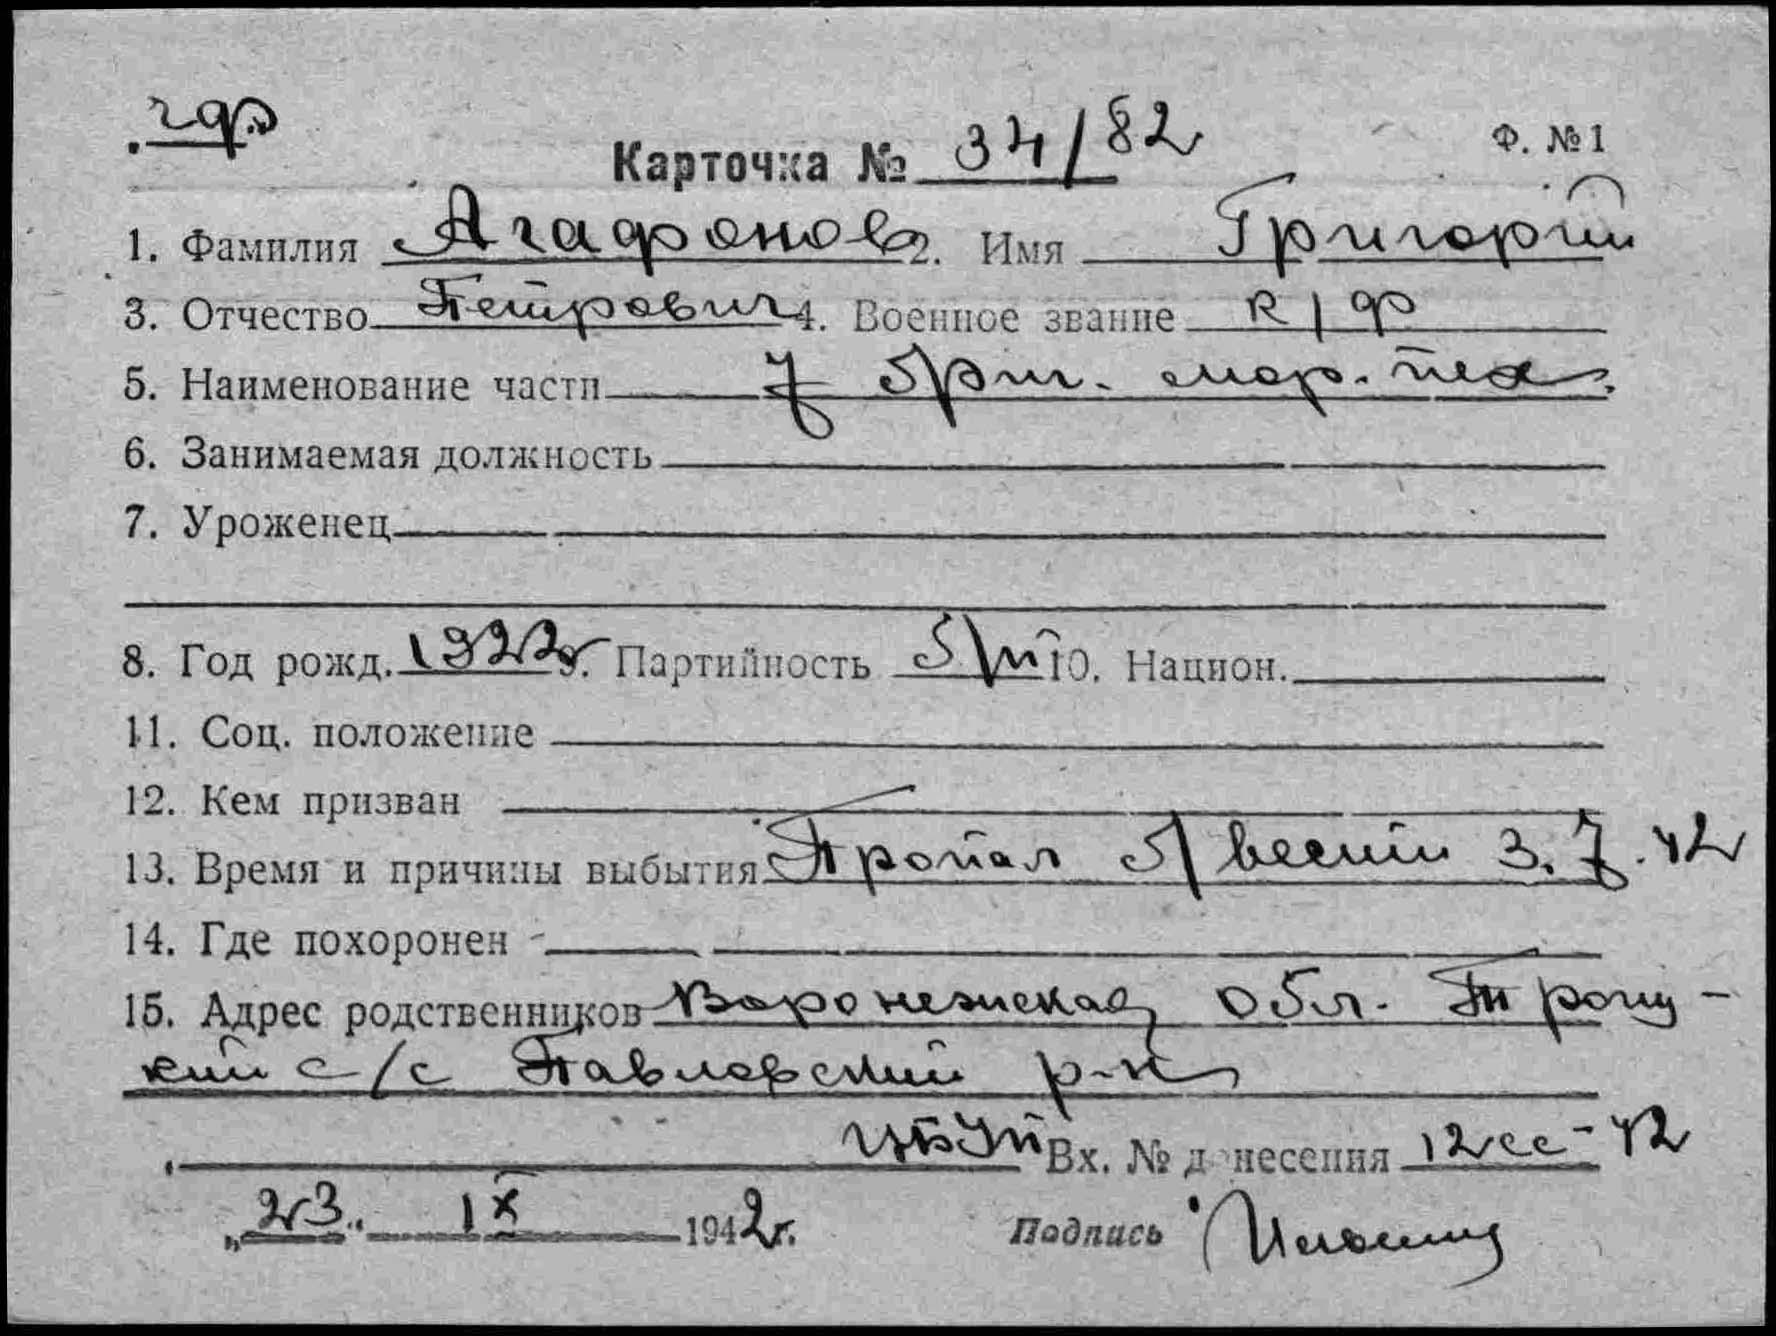 чф
Карточка № 34/82 Ф. №1
1. Фамилия Агафонов 2. Имя Григорий
3. Отчество Петрович 4. Военное звание к/ф
5. Наименование части 7 бриг. мор. пех.
6. Занимаемая должность
7. Уроженец
8. Год рожд. 1922г 9. Партийность б/п 10. Национ.
11. Соц. положение
12. Кем призван
13. Время и причины выбытия Пропал б/вести 3.7.42
14. Где похоронен
15. Адрес родственников Воронежская обл. Троиц-
кий с/с Павловский р-н
ЦБУП Вх. № донесения 12сс-42
„23“ IX 1942г.
Подпись